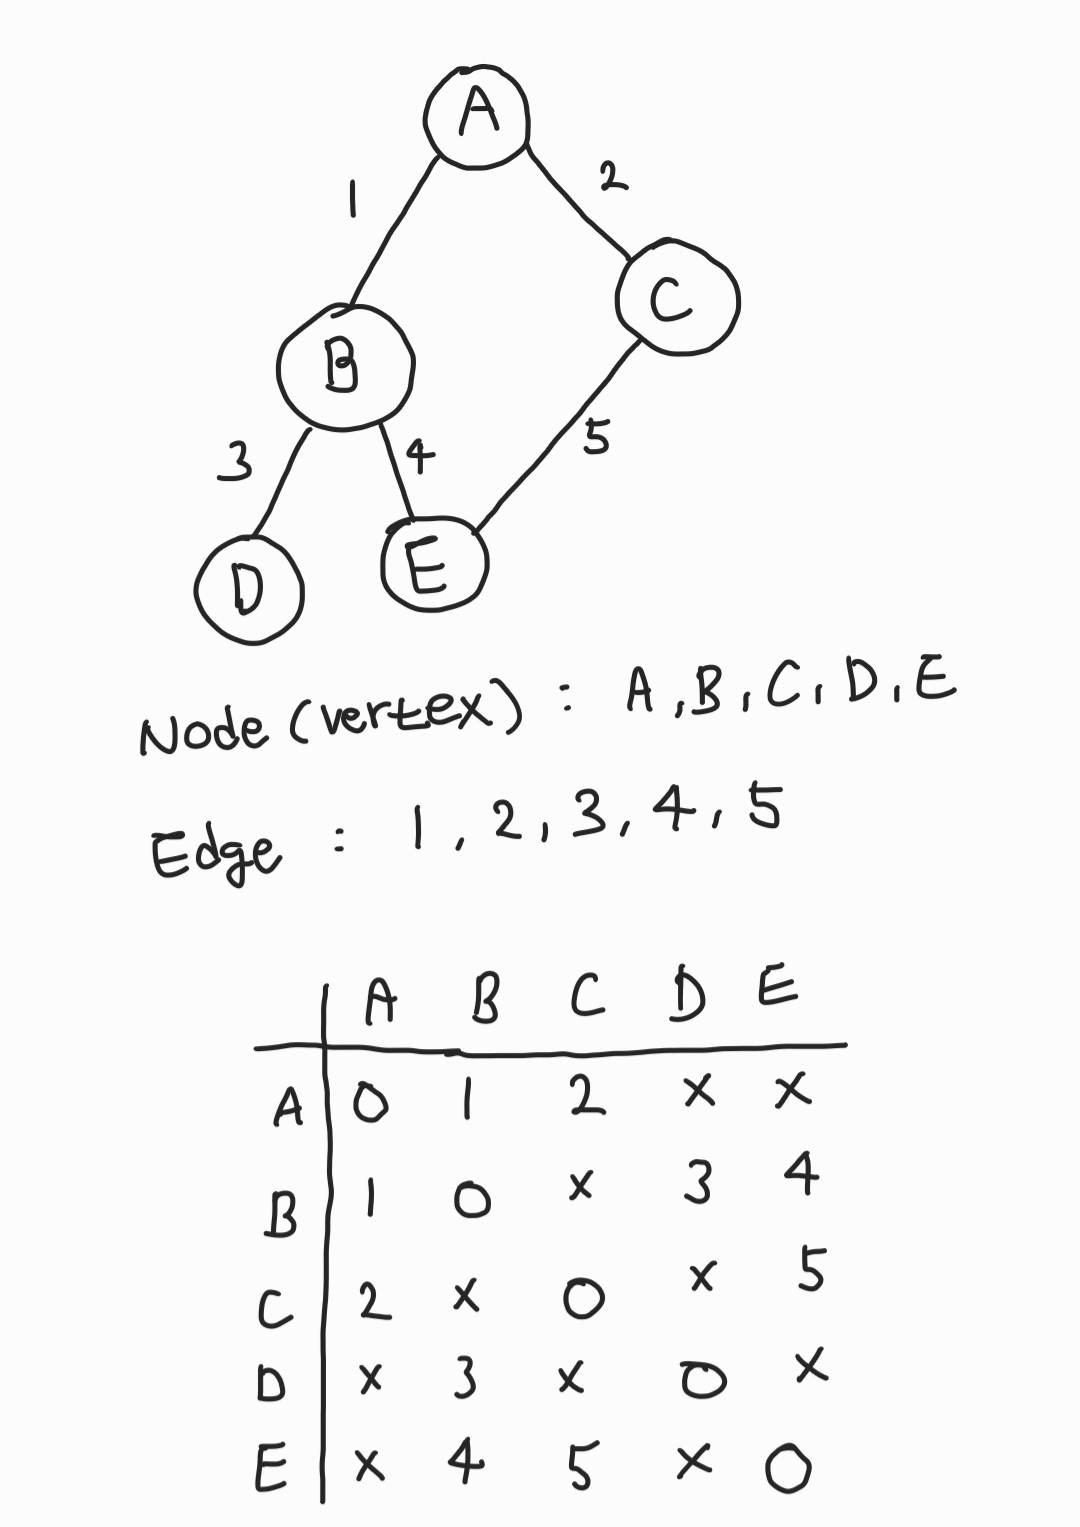 A
1 2
C
B
3 4 5
D E
Node (vertex) : A, B, C, D, E
Edge : 1, 2, 3, 4, 5
A B C D E
A 0 1 2 x x
B 1 0 x 3 4
C 2 x 0 x 5
D x 3 x 0 x
E x 4 5 x 0